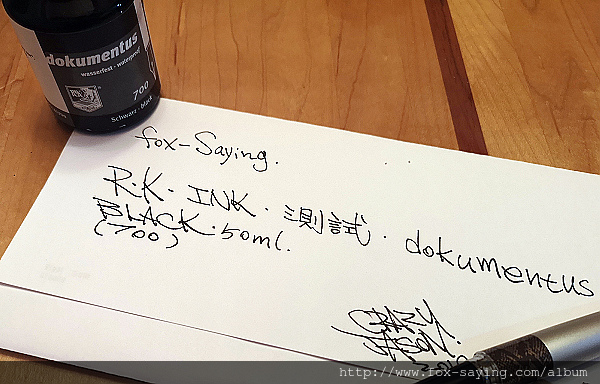 dokumentus
wasserfest · waterproof
700
Schwarz · black
fox-Saying.
R.K. INK. 測試. dokumentus
BLACK. 50ml.
(700)
CRAZY.
JASON.
http://www.fox-saying.com/album